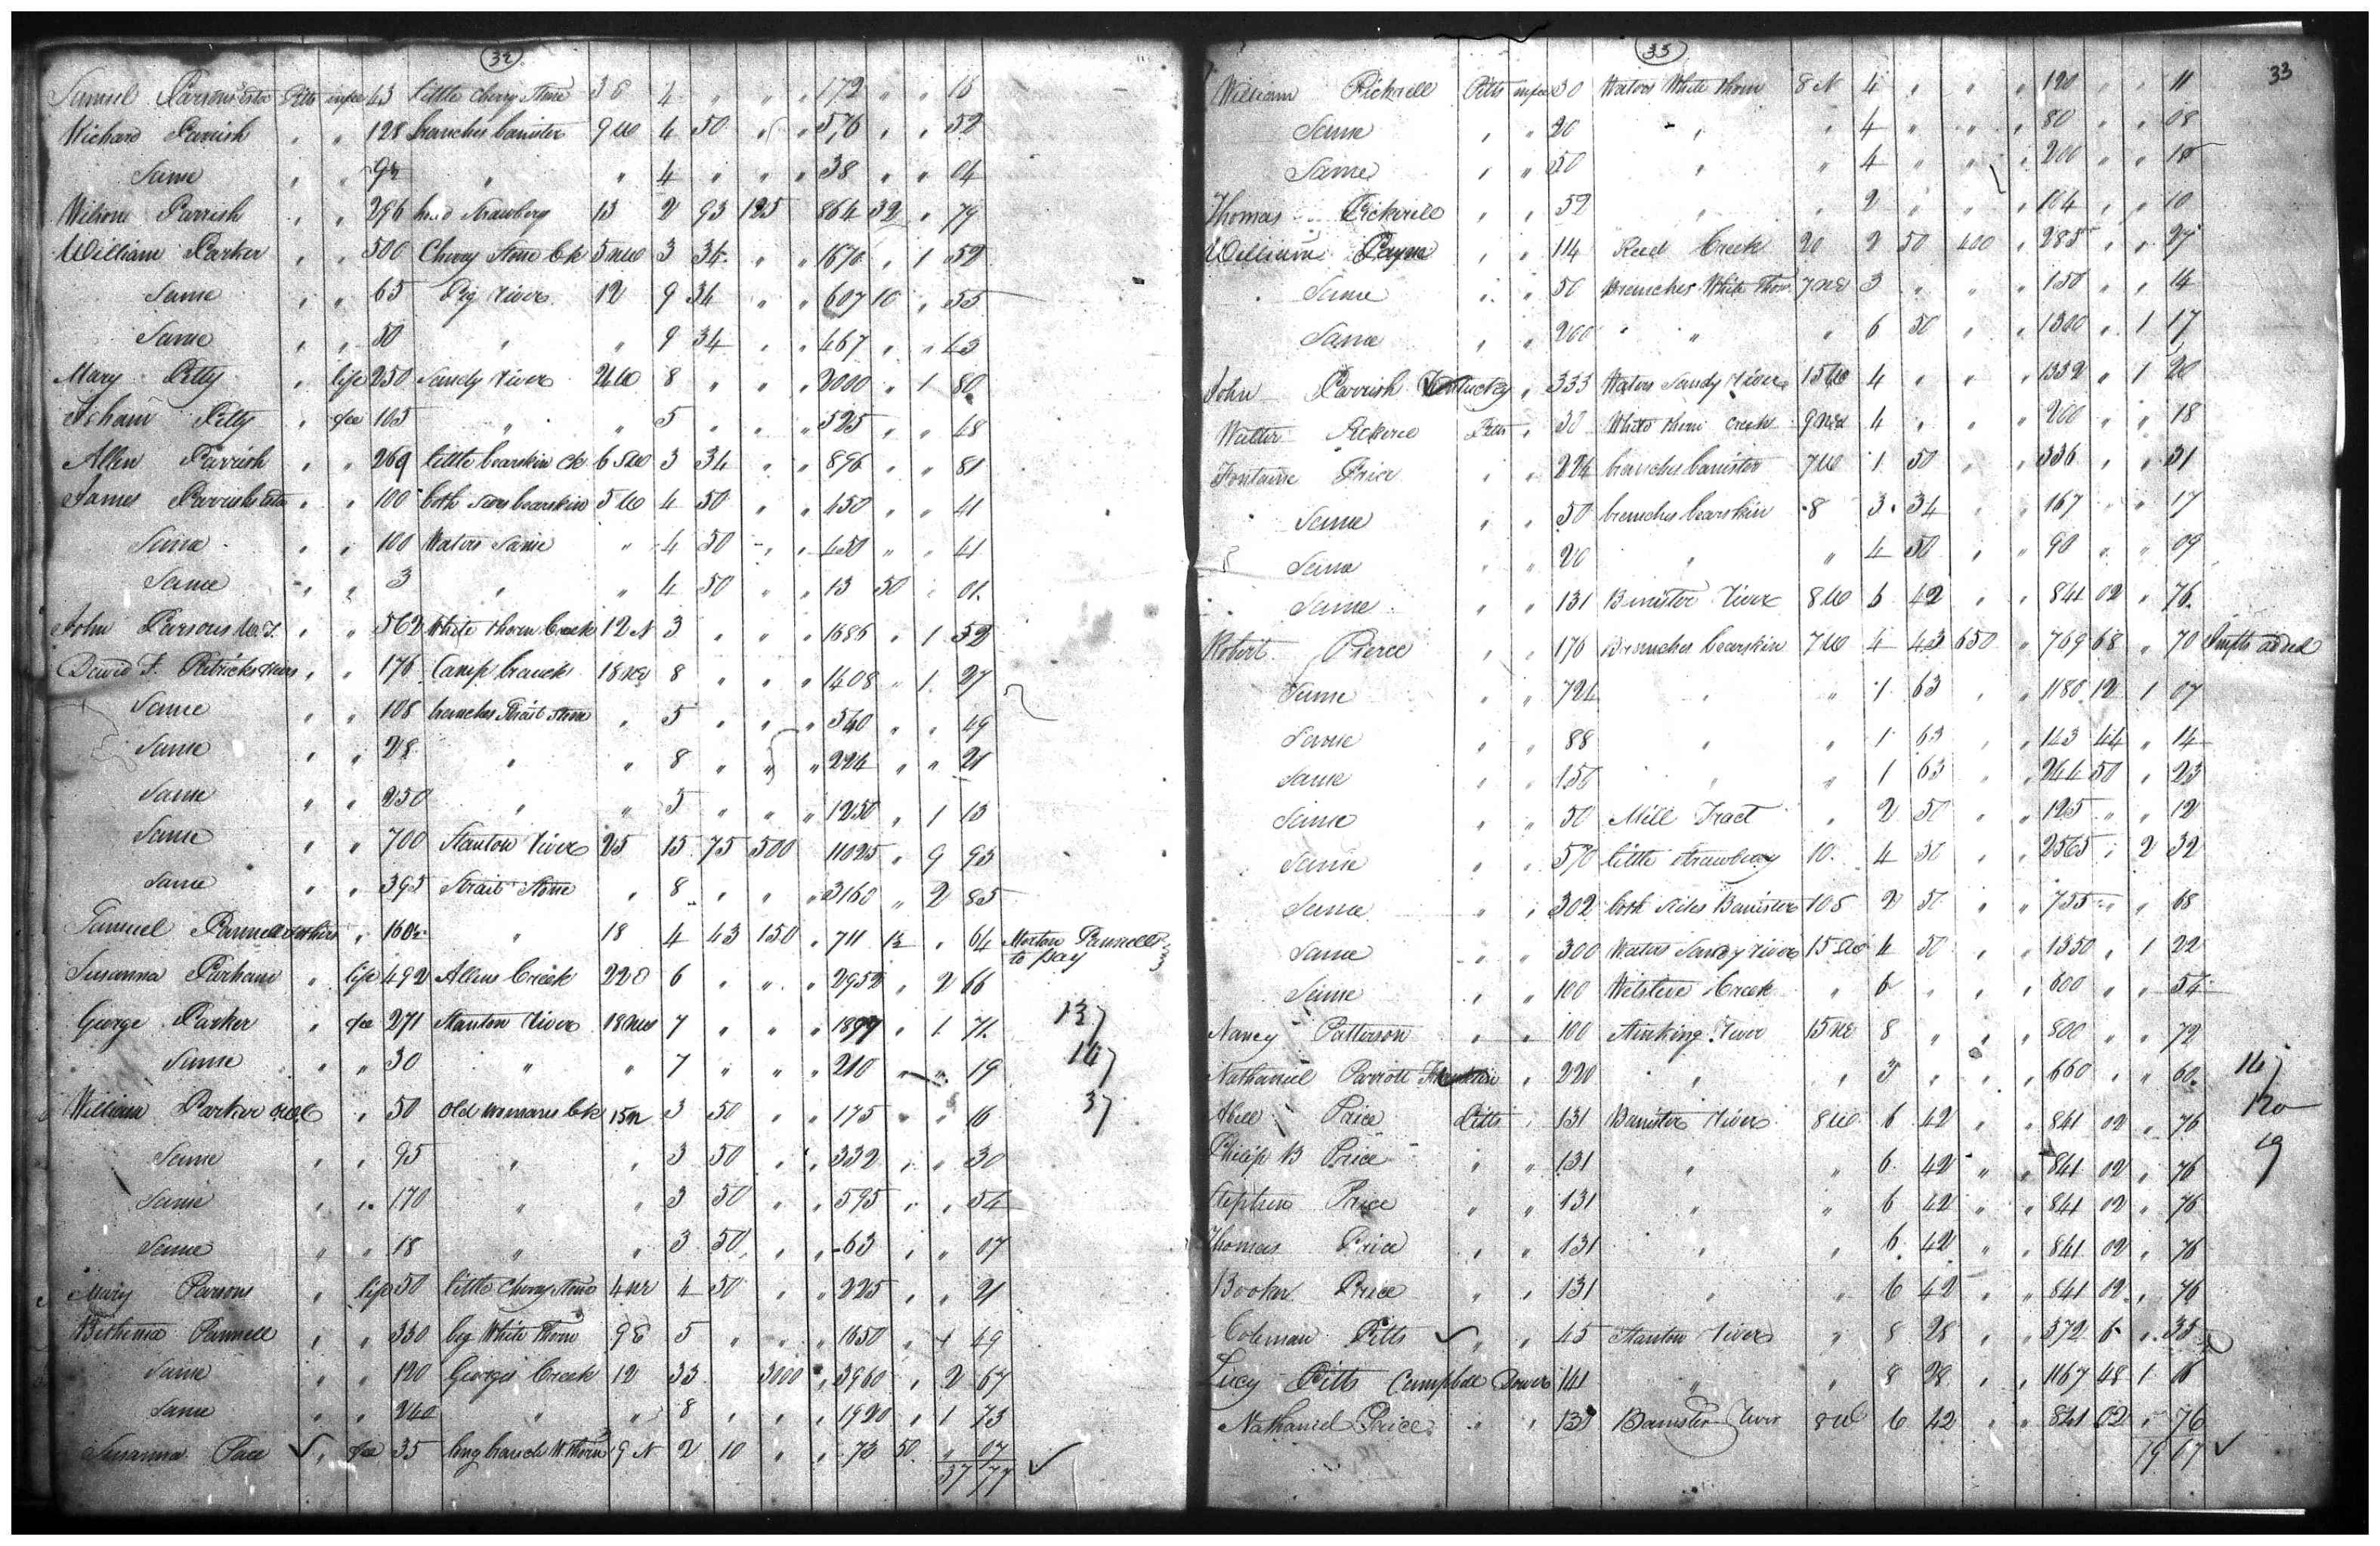 32
Samuel Parsons Est Pitts in fee 43 little Cherry Stone 3 S 4 " " " 172 " " 16
Richard Parrish " " 128 branches banister 9 W 4 50 " " 576 " " 52
Same " " 9½ " " 4 " " " 38 " " 04
Wilson Parrish " " 296 head Strawbery 13 2 93 125 864 32 " 79
William Parker " " 500 Cherry Stone Ck 5 NW 3 34 " " 1670 " 1 52
Same " " 65 Pig River 12 9 34 " " 607 10 " 55
Same " " 50 " " 9 34 " " 467 " " 43
Mary Petty " life 250 Sandy River 24 W 8 " " " 2000 " 1 80
Isham Petty " fee 105 " " 5 " " " 525 " " 48
Allen Parrish " " 269 little bearskin Ck 6 SW 3 34 " " 896 " " 81
James Parrish " " 100 both sides bearskin 5 W 4 50 " " 450 " " 41
Same " " 100 Waters Same " 4 50 " " 450 " " 41
Same " " 3 " " 4 50 " " 13 50 " 01
John Parsons " " 562 White thorn Creek 12 N 3 " " " 1686 " 1 52
David F. " " 176 Camp branch 18 NE 8 " " " 1408 " 1 27
Same " " 108 branches Strait Stone " 5 " " " 540 " " 49
Same " " 28 " " 8 " " " 224 " " 21
Same " " 250 " " 5 " " " 1250 " 1 13
Same " " 700 Stanton River 25 15 75 500 11025 " 9 93
Same " " 395 Strait Stone " 8 " " " 3160 " 2 85
Samuel Pannell " 160½ " 18 4 43 150 " 711 12 " 64 Morton Pannell
to pay
Susanna Parham " life 492 Allens Creek 22 E 6 " " " 2952 " 2 66
George Parker " fee 271 Stanton River 18 7 " " " 1897 " 1 71 13
Same " " 30 " " 7 " " " 210 " " 19 14
William Parker " 50 Old womans Ck 15 N 3 50 " " 175 " " 16 3
Same " " 95 " " 3 50 " " 332 " " 30
Same " " 170 " " 3 50 " " 595 " " 54
Same " " 18 " " 3 50 " " 63 " " 07
Mary Parsons " life 50 little Cherry Stone 4 4 50 " " 225 " " 21
Bethenia Pannell " " 330 big White Thorn 9 E 5 " " " 1650 " 1 49
Same " " 120 Georges Creek 12 33 3000 " 3960 " 2 67
Same " " 240 " " 8 " " " 1920 " 1 73
Susanna Pace " fee 35 long branch W. thorn 9 N 2 10 " " 73 50 " 07
37 77
33
33
William Pickrell Pitts in fee 30 Waters White thorn 8 N 4 " " " 120 " " 11
Same " " 20 " " 4 " " " 80 " " 08
Same " " 50 " " 4 " " " 200 " " 18
Thomas Pickrell " " 52 " " 2 " " " 104 " " 10
William Payne " " 114 Reed Creek 20 2 50 400 " 285 " " 27
Same " " 50 Branches White Thorn 7 NE 3 " " " 150 " " 14
Same " " 200 " " 6 50 " " 1300 " 1 17
John Parrish Kentucky " 333 Waters Sandy River 15 W 4 " " " 1332 " 1 20
Walter Pickrel Pitts " 50 White thorn Creek 9 NE 4 " " " 200 " " 18
Fontaine Price " " 224 branches banister 7 W 1 50 " " 336 " " 31
Same " " 50 branches bearskin 8 3 34 " " 167 " " 17
Same " " 20 " " 4 50 " " 90 " " 09
Same " " 131 Banister River 8 W 6 42 " " 841 02 " 76
Robert Pierce " " 176 Branches bearskin 7 W 4 43 650 " 769 68 " 70 Impts added
Same " " 724 " " 1 63 " " 1180 12 1 07
Same " " 88 " " 1 63 " " 143 44 " 14
Same " " 150 " " 1 63 " " 244 50 " 23
Same " " 50 Mill Tract " 2 50 " " 125 " " 12
Same " " 570 little Strawberry 10 4 50 " " 2565 " 2 32
Same " " 302 both sides Banister 10 S 2 50 " " 755 " " 68
Same " " 300 Waters Sandy River 15 SW 4 50 " " 1350 " 1 22
Same " " 100 Creek " 6 " " " 600 " " 54
Nancy Patterson " " 100 Stinking River 15 NE 8 " " " 800 " " 72
Nathaniel Parrott " 220 " " 3 " " " 660 " " 60 14
Abel Price Pitts " 131 Banister River 8 W 6 42 " " 841 02 " 76
Philip B Price " " 131 " " 6 42 " " 841 02 " 76 9
Stephen Price " " 131 " " 6 42 " " 841 02 " 76
Thomas Price " " 131 " " 6 42 " " 841 02 " 76
Booker Price " " 131 " " 6 42 " " 841 02 " 76
Coleman Pitts " " 45 Stanton River " 8 28 " " 372 6 " 35
Lucy Pitts Campbell Dower 141 " " 8 28 " " 1167 48 1 6
Nathaniel Price " " 131 Banister River 8 W 6 42 " " 841 02 " 76
19 07